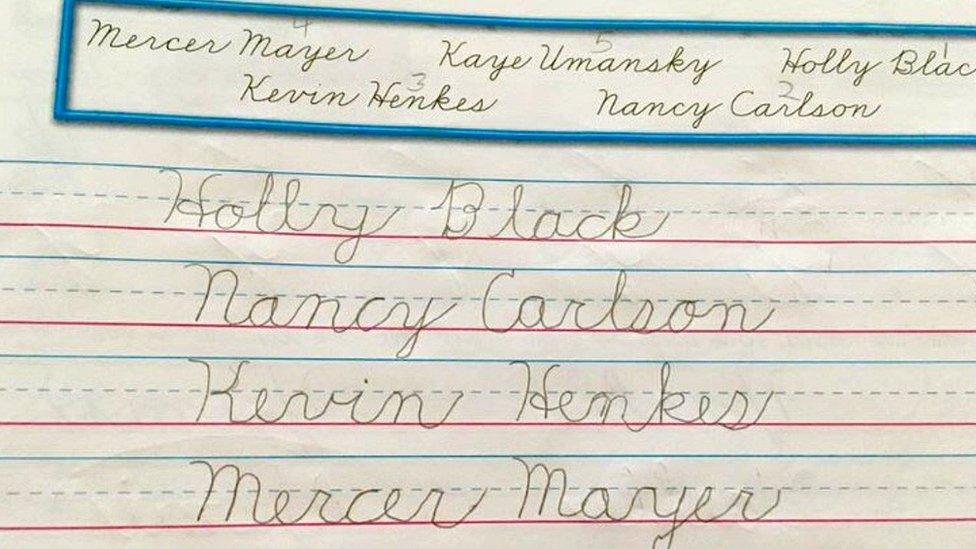 4 5 1
Mercer Mayer Kaye Umansky Holly Blac
3 2
Kevin Henkes Nancy Carlson
Holly Black
Nancy Carlson
Kevin Henkes
Mercer Mayer